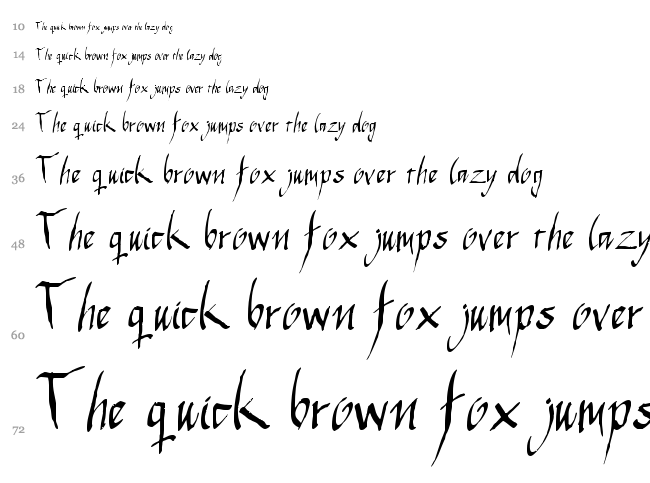 10 The quick brown fox jumps over the lazy dog
14 The quick brown fox jumps over the lazy dog
18 The quick brown fox jumps over the lazy dog
24 The quick brown fox jumps over the lazy dog
36 The quick brown fox jumps over the lazy dog
48 The quick brown fox jumps over the lazy
60 The quick brown fox jumps over
72 The quick brown fox jumps